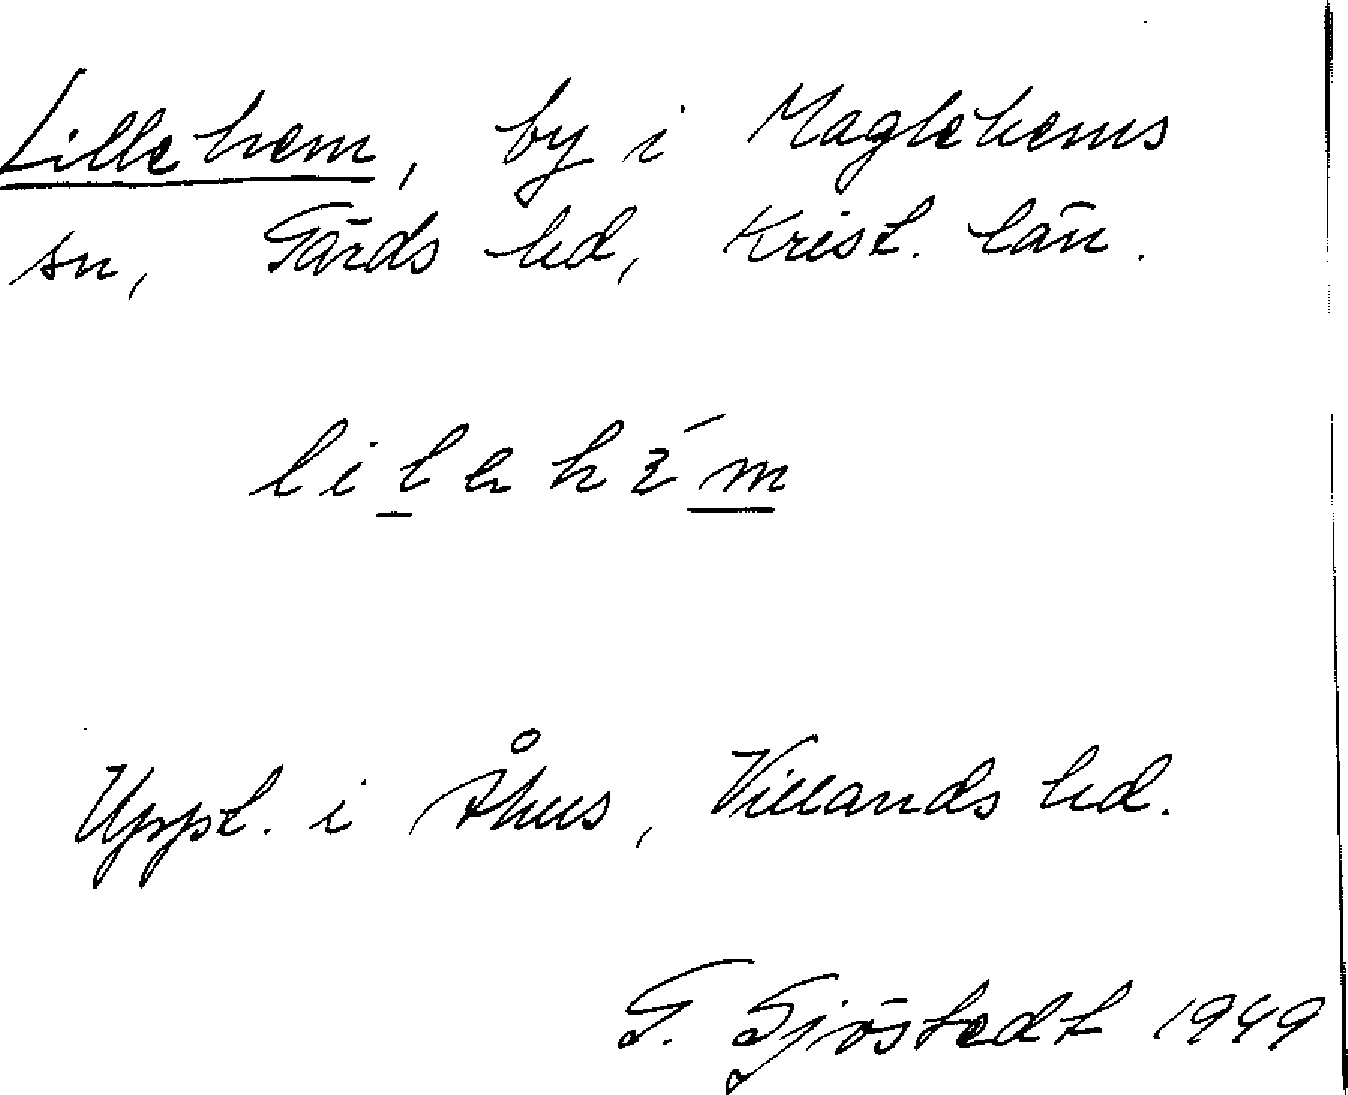 Lillehem, by i Maglehems
sn, Gärds hd, Krist. län.
Uppt. i Åhus, Villands hd.
G. Sjöstedt 1949